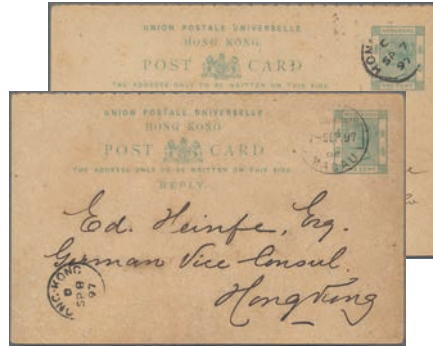 UNION POSTALE UNIVERSELLE
HONG KONG
POST CARD
THE ADDRESS ONLY TO BE WRITTEN ON THIS SIDE
HONG
C
SP 7
97
UNION POSTALE UNIVERSELLE
HONG KONG
POST CARD
THE ADDRESS ONLY TO BE WRITTEN ON THIS SIDE
REPLY.
7-SEP 97
MACAU
Ed. Heinfe, Esq.
German Vice Consul.
Hongkong
ONG-KONG
SP 8
97